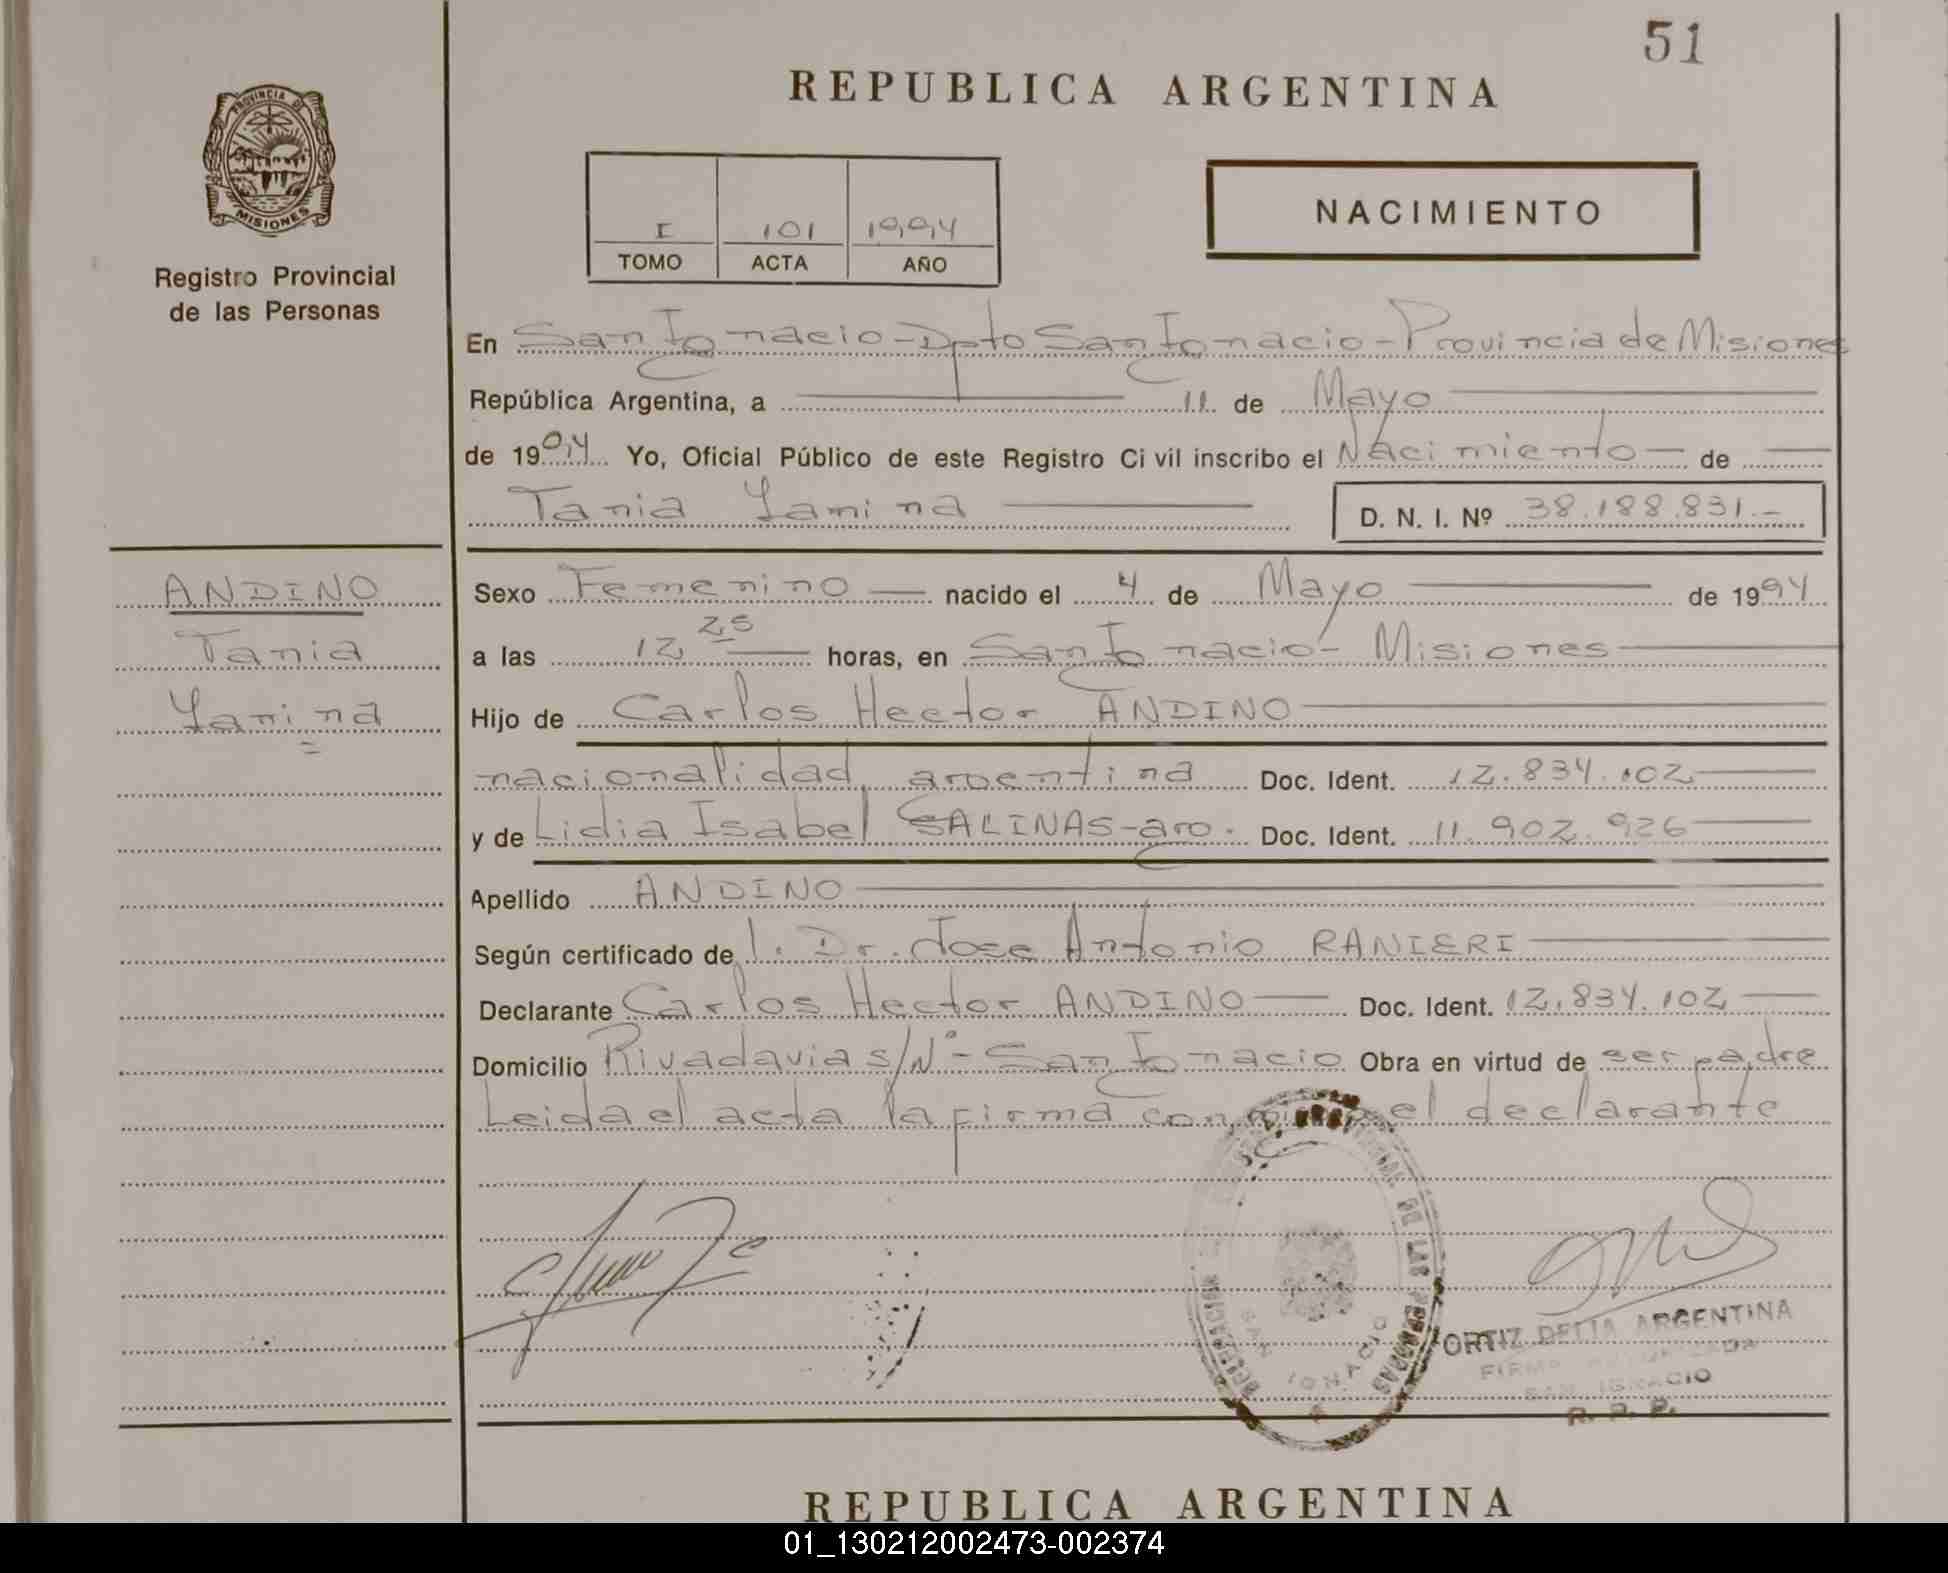 51
REPUBLICA ARGENTINA
PROVINCIA DE
MISIONES
Registro Provincial
de las Personas
I 101 1994
TOMO ACTA AÑO
NACIMIENTO
En San Ignacio - Dpto San Ignacio - Provincia de Misiones
República Argentina, a 11 de Mayo
de 1994 Yo, Oficial Público de este Registro Civil inscribo el Nacimiento de
Tania Yanina D. N. I. Nº 38.188.831.-
ANDINO
Tania
Yanina
Sexo Femenino nacido el 4 de Mayo de 1994
a las 12 25 horas, en San Ignacio - Misiones
Hijo de Carlos Hector ANDINO
nacionalidad argentina Doc. Ident. 12.834.102
y de Lidia Isabel SALINAS - arg. Doc. Ident. 11.902.926
Apellido ANDINO
Según certificado de l. Dr. Jose Antonio RANIERI
Declarante Carlos Hector ANDINO Doc. Ident. 12.834.102
Domicilio Rivadavia s/Nº - San Ignacio Obra en virtud de ser padre
Leida el acta la firma conmigo el declarante
DE LAS PERSONAS
DELEGACION
SAN IGNACIO
ORTIZ DELIA ARGENTINA
FIRMA AUTORIZADA
SAN IGNACIO
R. P. P.
REPUBLICA ARGENTINA
01_130212002473-002374